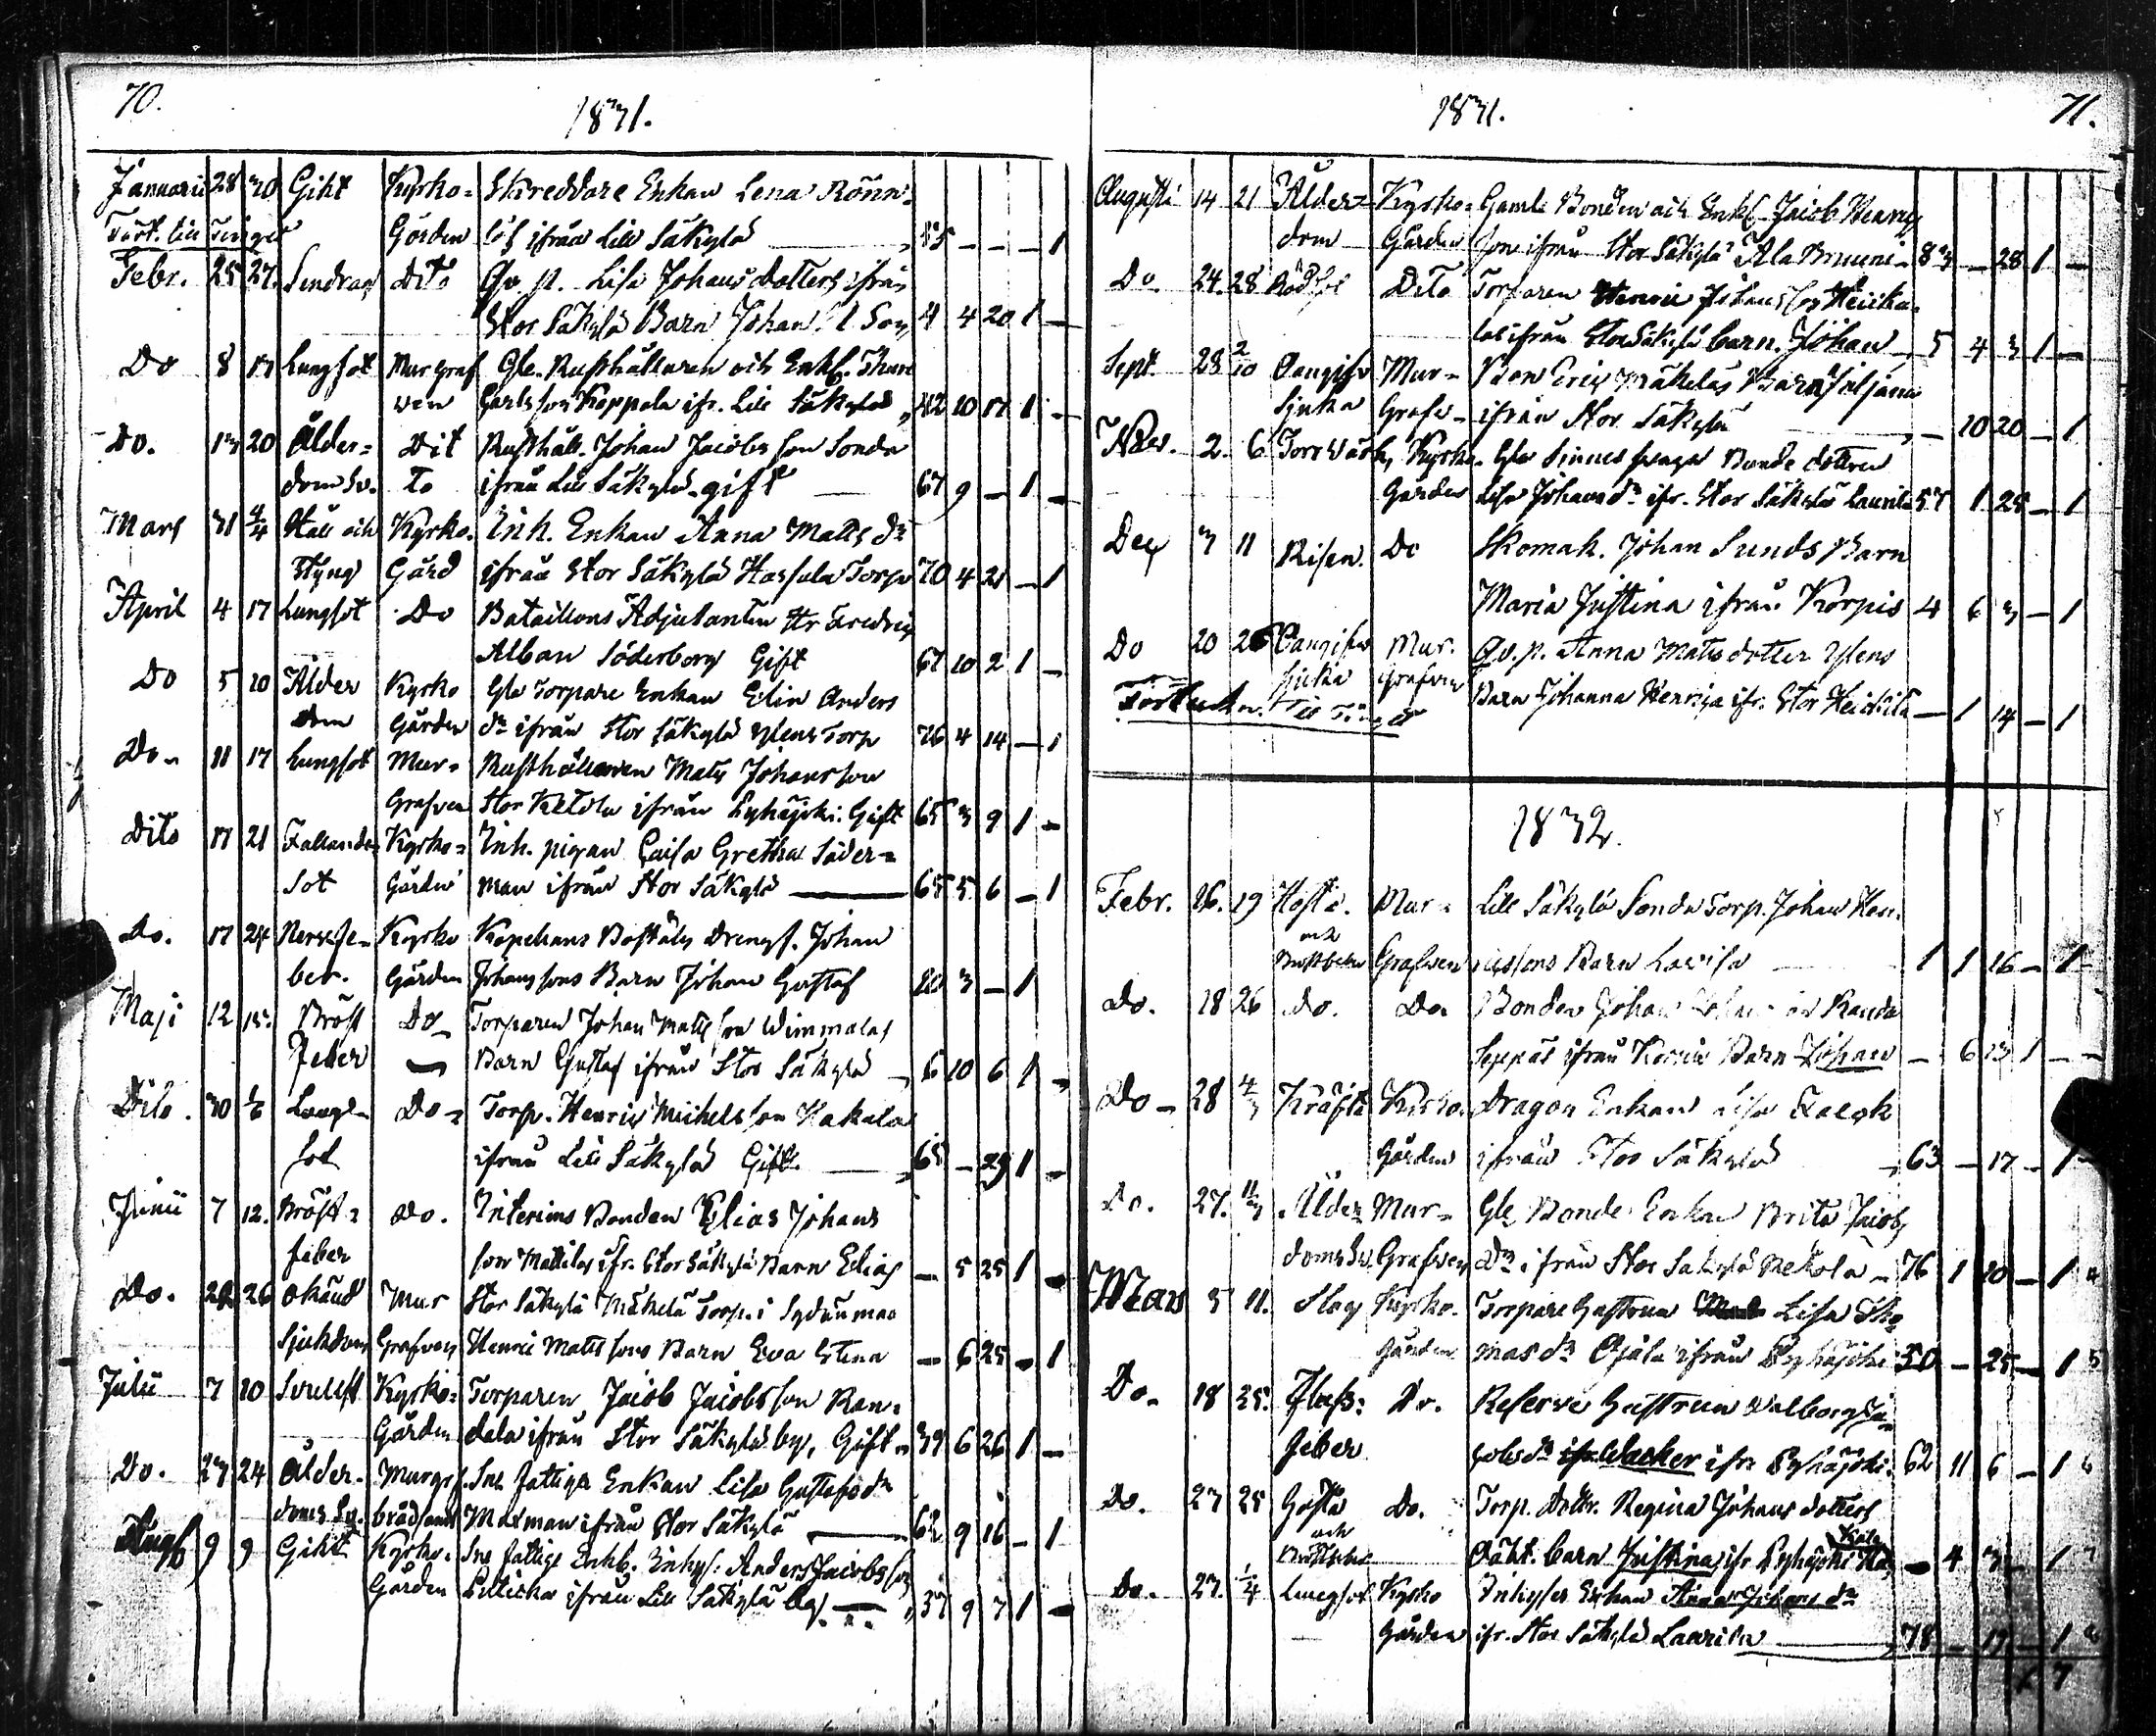 70.
1831.
Januarii 28 30 Gikt Kyrko= Skreddare Enkan Lena Rönn=
Gården löf ifrån Lill Säkylä 55 - - - 1
Febr. 25 27. Dito Qv. p. Lisa Johans dotters ifrån
Stor Säkylä Barn Johan 4 4 20 1 -
Do 8 17 Lungsot Murgraf Gle. Rusthållaren och Enkl. Thure
ven Carlsson Keppola ifr. Lill Säkylä 42 10 17 1 -
Do. 13 20 Ålder= Dit Rusthåll. Johan Jacobsson Sonda
doms sv. to ifrån Lill Säkylä gift 67 9 - 1 -
Mars 31 4/4 Håll och Kyrko. Inh. Enkan Anna Matts dr
Styng Gård ifrån Stor Säkylä Torp 70 4 21 - 1
April 4 17 Lungsot Do Bataillons Adjutanten Hr Fredric
Alban Söderborg Gift 67 10 2 1 -
Do 5 10 Ålder Kyrko Gla Torpare Enkan Elin Anders
dom Gården dr ifrån Stor Säkylä Torp 76 4 14 - 1
Do 11 17 Lungsot Mur= Rusthållaren Matts Johansson
Grafven Stor Ketola ifrån Pyhäjoki. Gift 65 3 9 1 -
Dito 17 21 Fallande Kyrko= Inh. pigan Caisa Gretha Söder=
Sot Gården man ifrån Stor Säkylä 65 5 6 - 1
Do. 17 24 Nervfe= Kyrko Kapellans Boställs Drengs. Johan
ber. Gården Johanssons Barn Johan Gustaf 10 3 - 1
Maji 12 15. Bröst Do Torparen Johan Mattsson Wimmalas
Feber Barn Gustaf ifrån Stor Säkylä 6 10 6 1 -
Dito. 30 1/6 Lung= Do Torp. Henric Michelsson Kakala
sot ifrån Lill Säkylä Gift 65 - 29 1 -
Junii 7 12. Bröst= Do. Interims Bonden Elias Johans
feber son Mattilas ifr. Stor Säkylä Barn Elias - 5 25 1 -
Do. 22 26 Okänd Mur Stor Säkylä Mäkelä Torp. i Sydänmaa
Sjukdom Grafven Henric Mattssons Barn Eva Stina - 6 25 - 1
Julii 7 10 Svullst Kyrko= Torparen Jacob Jacobsson Ran=
Gården dala ifrån Stor Säkylä by, Gift 39 6 26 1 -
Do. 23 24 Ålder- Fattiga Enkan Lisa Gustafs dr
doms Sv. Maxman ifrån Stor Säkylä 62 9 16 - 1
Aug 9 9 Gikt Kyrko. Fattige Enkl. Inhys. Anders Jacobsson
Gården ifrån Lill Säkylä by. 37 9 7 1 -
1831.
71.
Augusti 14 21 Ålder= Kyrko= Gamle Bonden och Enkl. Jacob Henrics
dom Gården son ifrån Stor Säkylä Ala Bruuni 83 - 28 1 -
Do. 24. 28 Rödsot Dito Torparen Henric Johansson Heicku
las ifrån Stor Säkylä barn. Johan 5 4 3 1 -
Sept. 28 2/10 Oangifv Mur= Eric Mäkeläs Barn
Sjuka Grafv- ifrån Stor Säkylä - 10 20 - 1
Nov. 2. 6 Torrvärk Kyrko. Gla Sinnes svaga Bonde dottren
Gården Lisa Johans dr ifr. Stor Säkylä Laurila 57 1 25 - 1
Dec 3 11 Risen. Do Skomak. Johan Sunds Barn
Maria Justina ifrån Korpis 4 6 3 - 1
Do 20 26 Oangifv Mur. Qv. p. Anna Matts dotter
Sjuka Grafven Barn Johanna Henrica ifr. Stor - 1 14 - 1
1832.
Febr. 16. 19 Hosta. Mur= Lill Säkylä Sonda Torp. Johan Hen.
och
Grafven ricssons Barn Lovisa 1 1 16 - 1
Do. 18 26 Do. Do. Bonden Johan
Seppäs ifrån Barn Johan - 6 13 1 -
Do 28 4/3 Kräfta Kyrko. Dragon Enkan Lisa
Gården ifrån Stor Säkylä 63 - 17 - 1
Do. 27. 11/3 Ålder Mur= Gle Bonde Enkan Brita Jacobs
doms Sv. Grafven Dr ifrån Stor Säkylä 76 1 10 - 1 4
Mars 5 11. Slag Kyrko. Torpare Hustrun Lisa Tho
gården mas dr Ojala ifrån Pyhäjoki 50 - 25 - 1 5
Do. 18 25. Do. Reserve Hustrun Valborg Ja
Feber cobs dr Wacker ifr. Pyhäjoki. 62 11 6 - 1 6
Do. 23 25 Hosta Do. Torp. Dottr. Regina Johans dotters
och
Oäkt. barn Justina ifr Pyhäjoki - 4 3 - 1 7
Do. 27. 1/4 Lungsot Kyrko Inhyses Enkan Anna Johans dr
Gården ifr. Stor Säkylä Laurila 78 - 17 - 1 8